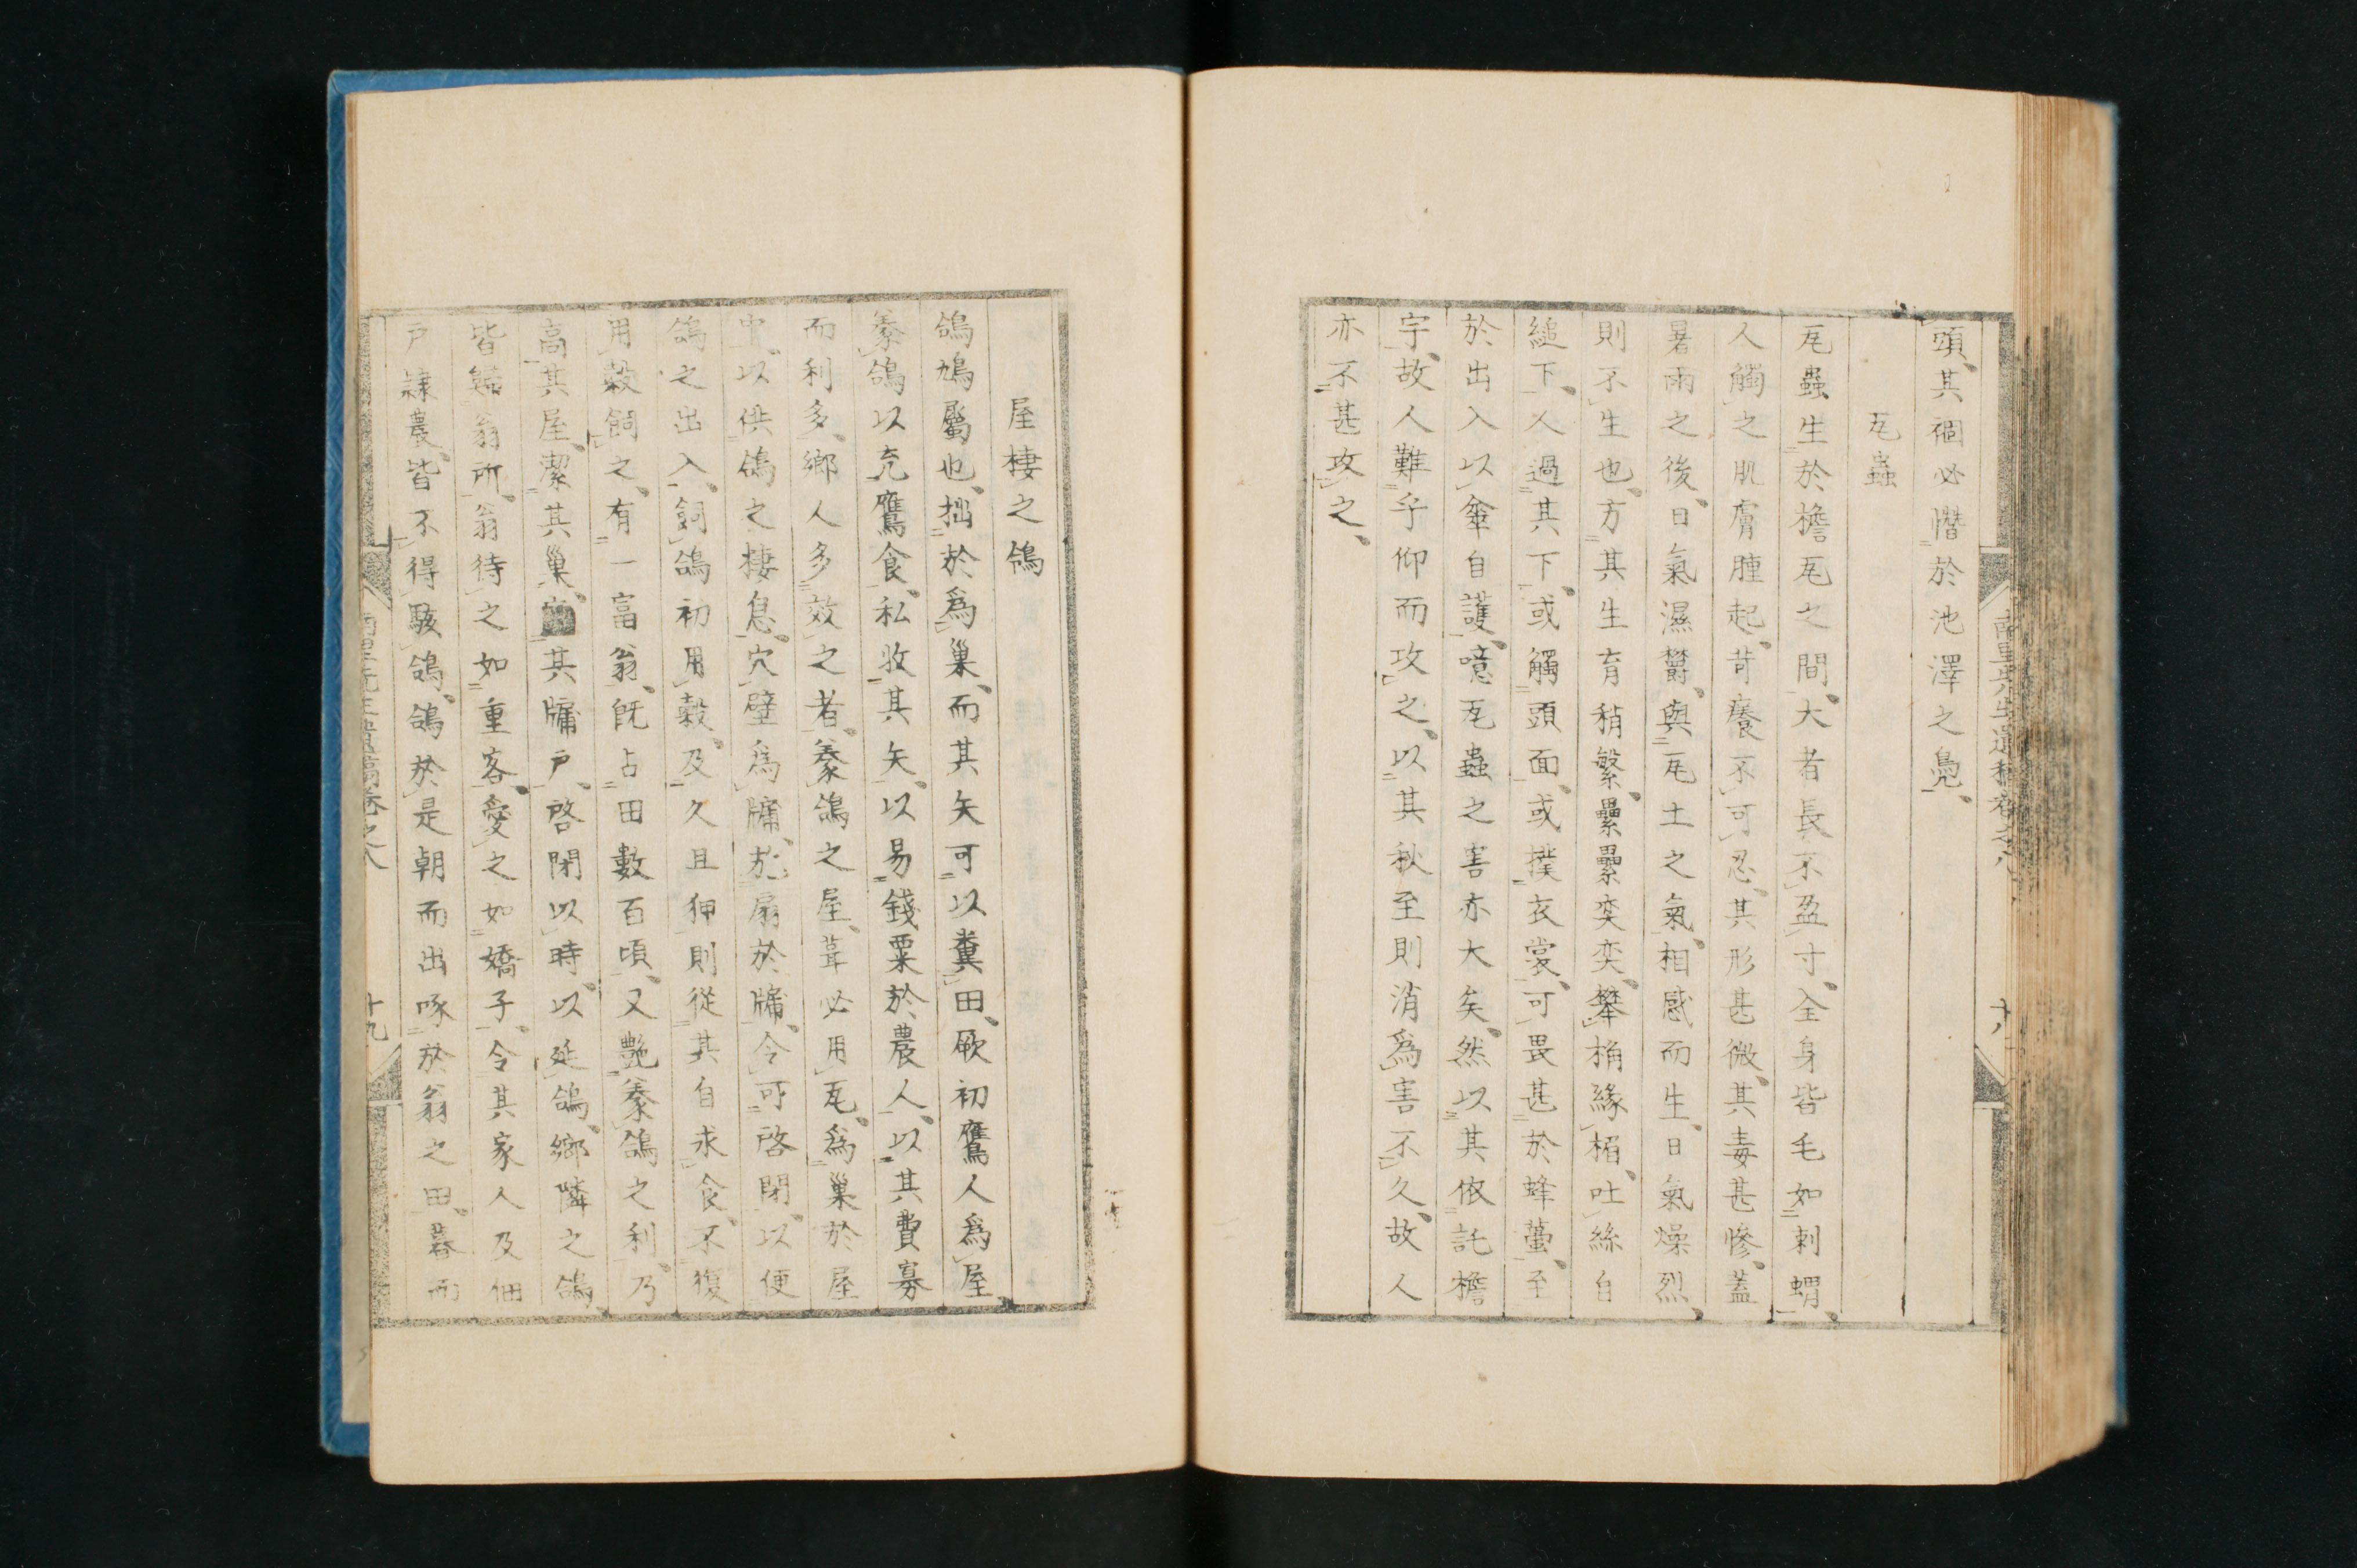 頭、其禍必憯於池澤之鳧、
瓦蟲
瓦蟲生於檐瓦之間、大者長不盈寸、全身皆毛如刺蝟、
人觸之肌膚腫起、苛癢不可忍、其形甚微、其毒甚慘、蓋
暑雨之後、日氣濕欝、與瓦土之氣、相感而生、日氣燥烈、
則不生也、方其生育稍繁、纍纍奕奕、攀桷緣楣、吐絲自
縋下、人過其下、或觸頭面、或撲衣裳、可畏甚於蜂蠆、至
於出入以傘自護、噫瓦蟲之害亦大矣、然以其依託檐
宇、故人難乎仰而攻之、以其秋至則消爲害不久、故人
亦不甚攻之、
屋棲之鴿
鴿鳩屬也、拙於爲巢、而其矢可以糞田、厥初鷹人爲屋、
養鴿以充鷹食、私收其矢、以易錢粟於農人、以其費寡
而利多、鄉人多效之者、養鴿之屋、葺必用瓦、爲巢於屋
中、以供鴿之棲息、穴壁爲牖、施扇於牖、令可啓閉、以便
鴿之出入、飼鴿初用穀、及久且狎則從其自求食、不復
用穀飼之、有一富翁、旣占田數百頃、又艷養鴿之利、乃
高其屋、潔其巢、其牖戶、啓閉以時、以延鴿、鄉隣之鴿、
皆翁所、翁待之如重客、愛之如嬌子、令其家人及佃
戶隷農、皆不得駭鴿、鴿於是朝而出啄於翁之田、暮而
遺稿卷之八
十九